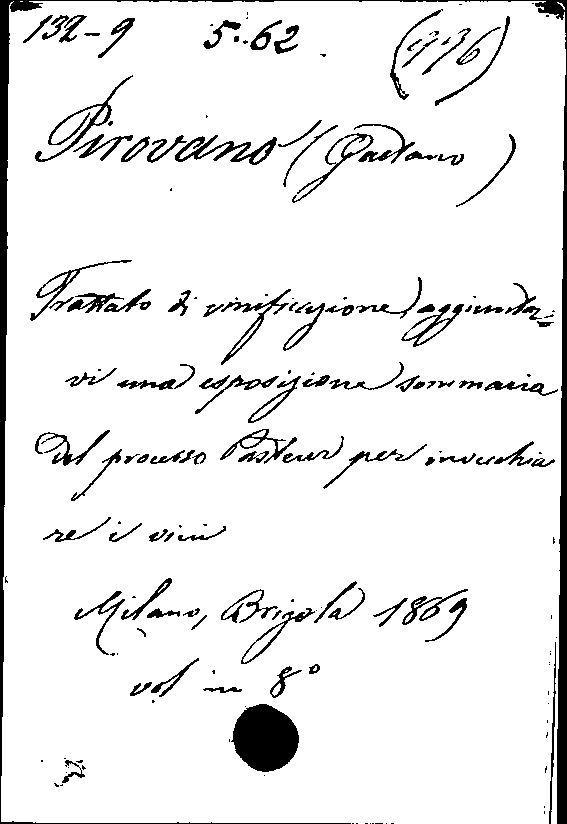 132-9 5.. 62
Pirovano (Gaetano)
Trattato di vinificazione aggiunta=
vi una esposizione sommaria
del processo Pasteur per invecchia
re i vini
Milano, Brigola 1869
vol in 8°